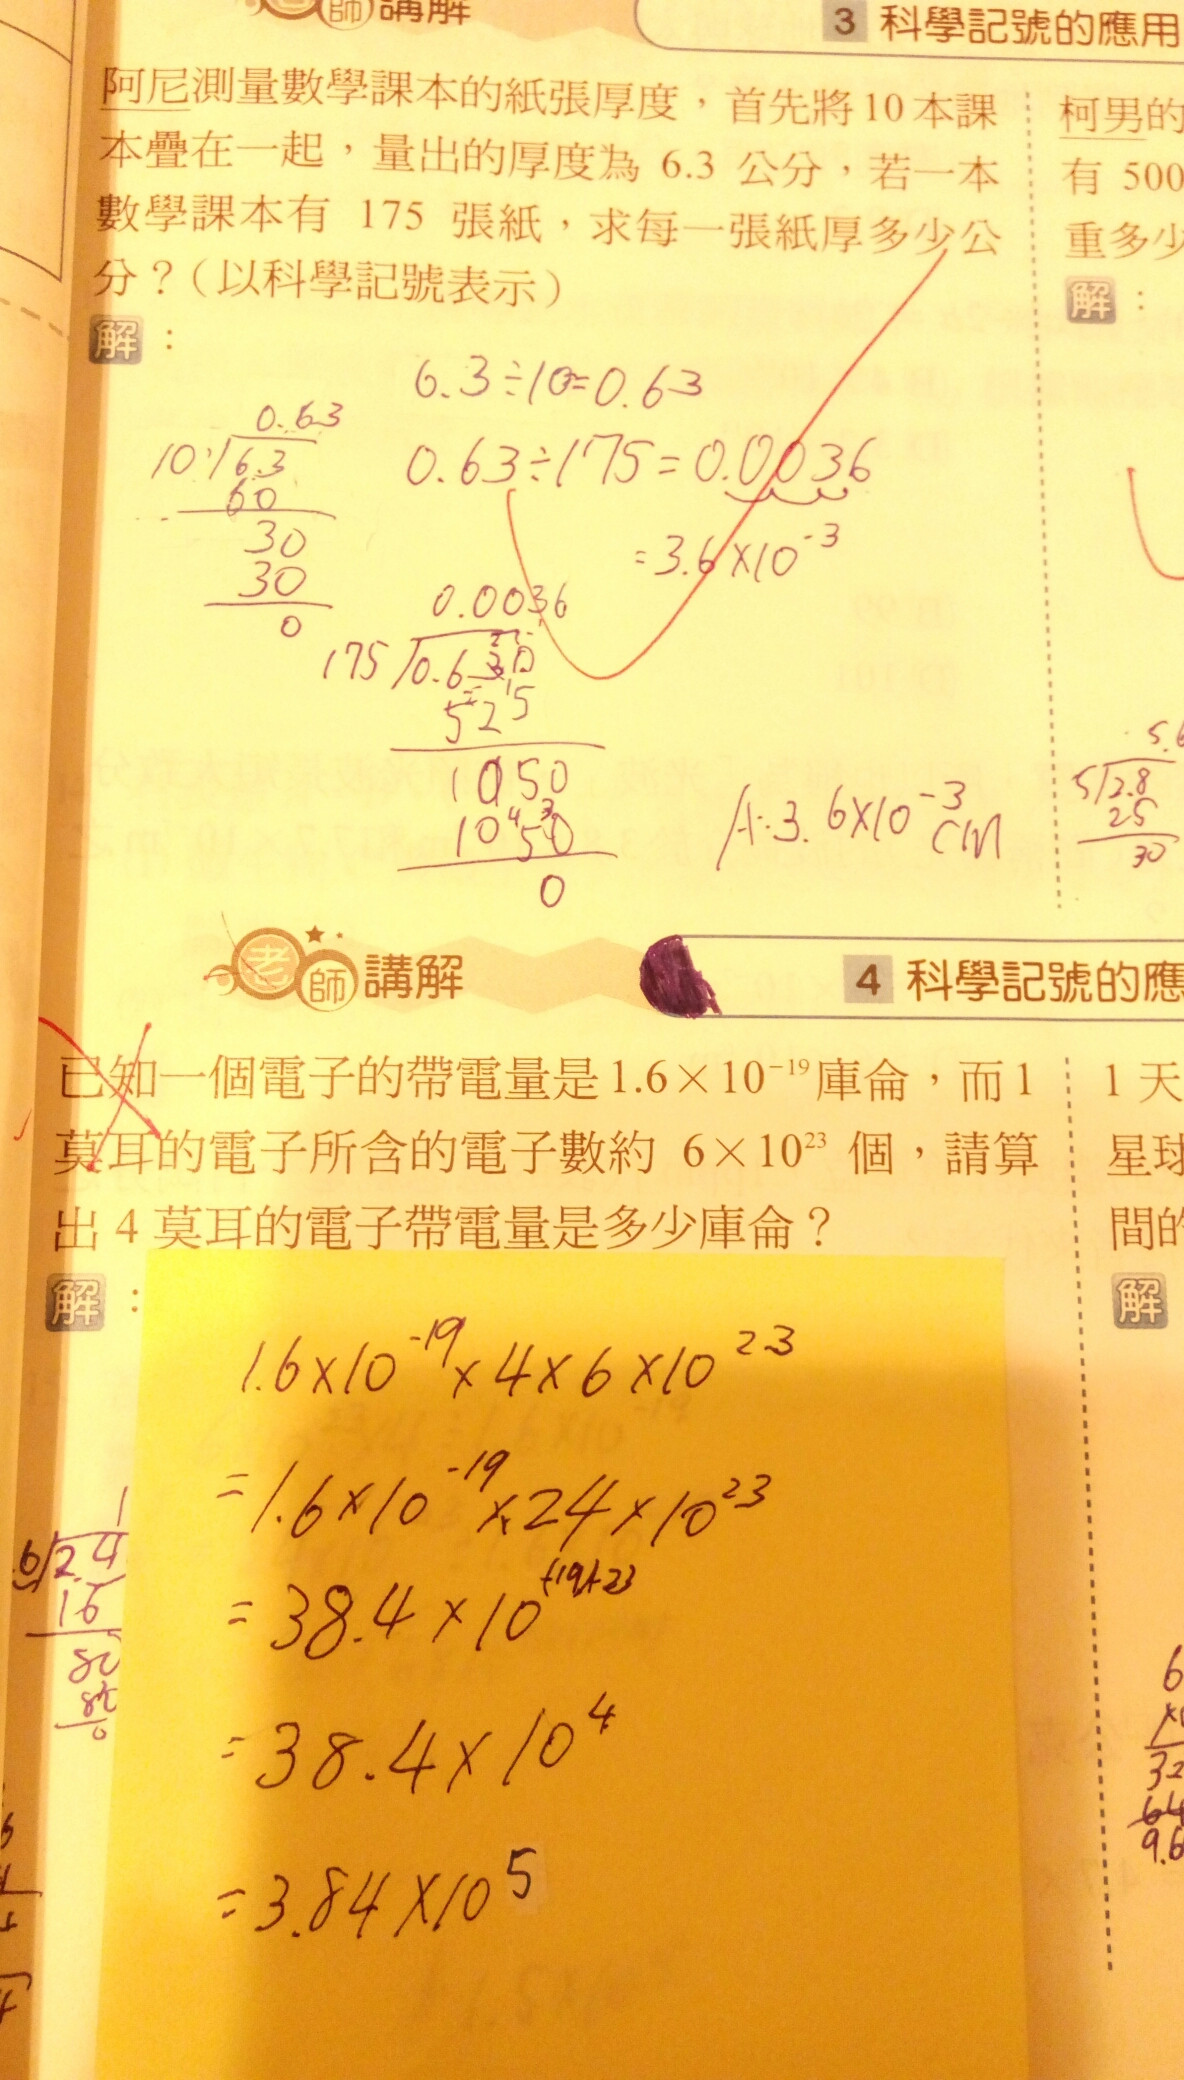 師 講解
3 科學記號的應用
阿尼測量數學課本的紙張厚度,首先將10本課
本疊在一起,量出的厚度為 6.3 公分,若一本
數學課本有 175 張紙,求每一張紙厚多少公
分?(以科學記號表示)
解:
6.3÷10=0.63
0.63÷175=0.0036
=3.6×10⁻³
0.63
10 6.3
60
30
30
0
0.0036
175 0.630
525
1050
1050
0
A:3.6×10⁻³ cm
柯男的
有 500
重多少
解:
5 2.8
25
30
老師 講解
4 科學記號的應
已知一個電子的帶電量是1.6×10⁻¹⁹庫侖,而1
莫耳的電子所含的電子數約 6×10²³ 個,請算
出 4 莫耳的電子帶電量是多少庫侖?
解:
1.6×10⁻¹⁹×4×6×10²³
=1.6×10⁻¹⁹×24×10²³
=38.4×10⁻¹⁹⁺²³
=38.4×10⁴
=3.84×10⁵
2.4
16
80
80
0
1 天
星球
間的
解
9.6